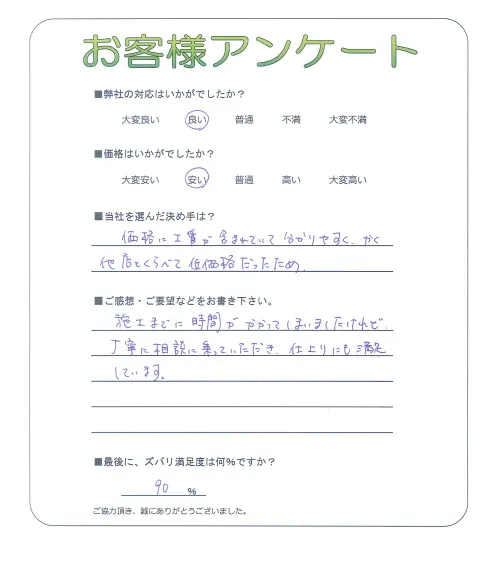 お客様アンケート
■弊社の対応はいかがでしたか？
大変良い 良い 普通 不満 大変不満
■価格はいかがでしたか？
大変安い 安い 普通 高い 大変高い
■当社を選んだ決め手は？
価格に工賃が含まれていて分かりやすく、かく
他店とくらべて低価格だったため、
■ご感想・ご要望などをお書き下さい。
施工までに時間がかかってしまいましたけれど、
丁寧に相談に乗っていただき、仕上りにも満足
しています。
■最後に、ズバリ満足度は何%ですか？
90 %
ご協力頂き、誠にありがとうございました。